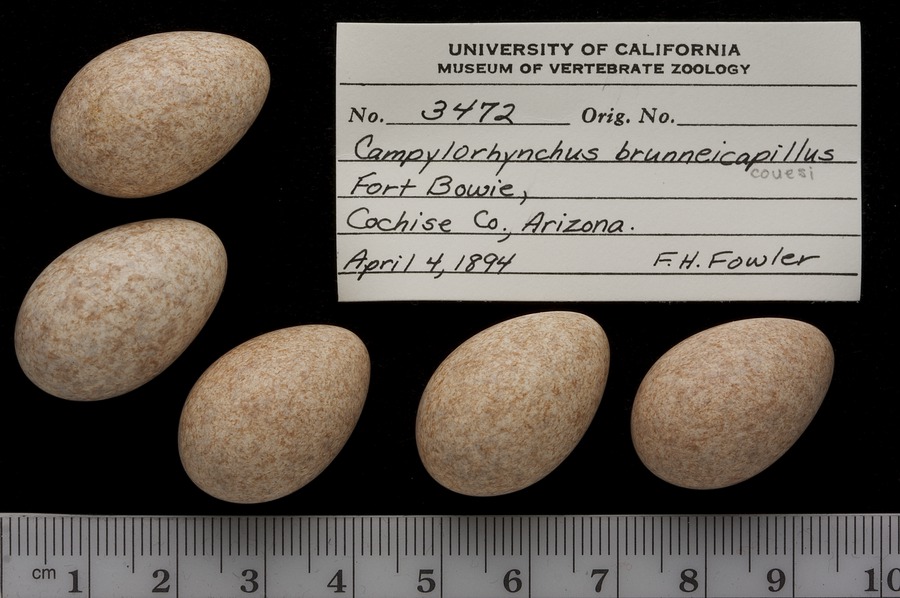 UNIVERSITY OF CALIFORNIA
MUSEUM OF VERTEBRATE ZOOLOGY
No. 3472 Orig. No.
Campylorhynchus brunneicapillus
couesi
Fort Bowie,
Cochise Co., Arizona.
April 4, 1894 F.H. Fowler
cm 1 2 3 4 5 6 7 8 9 10